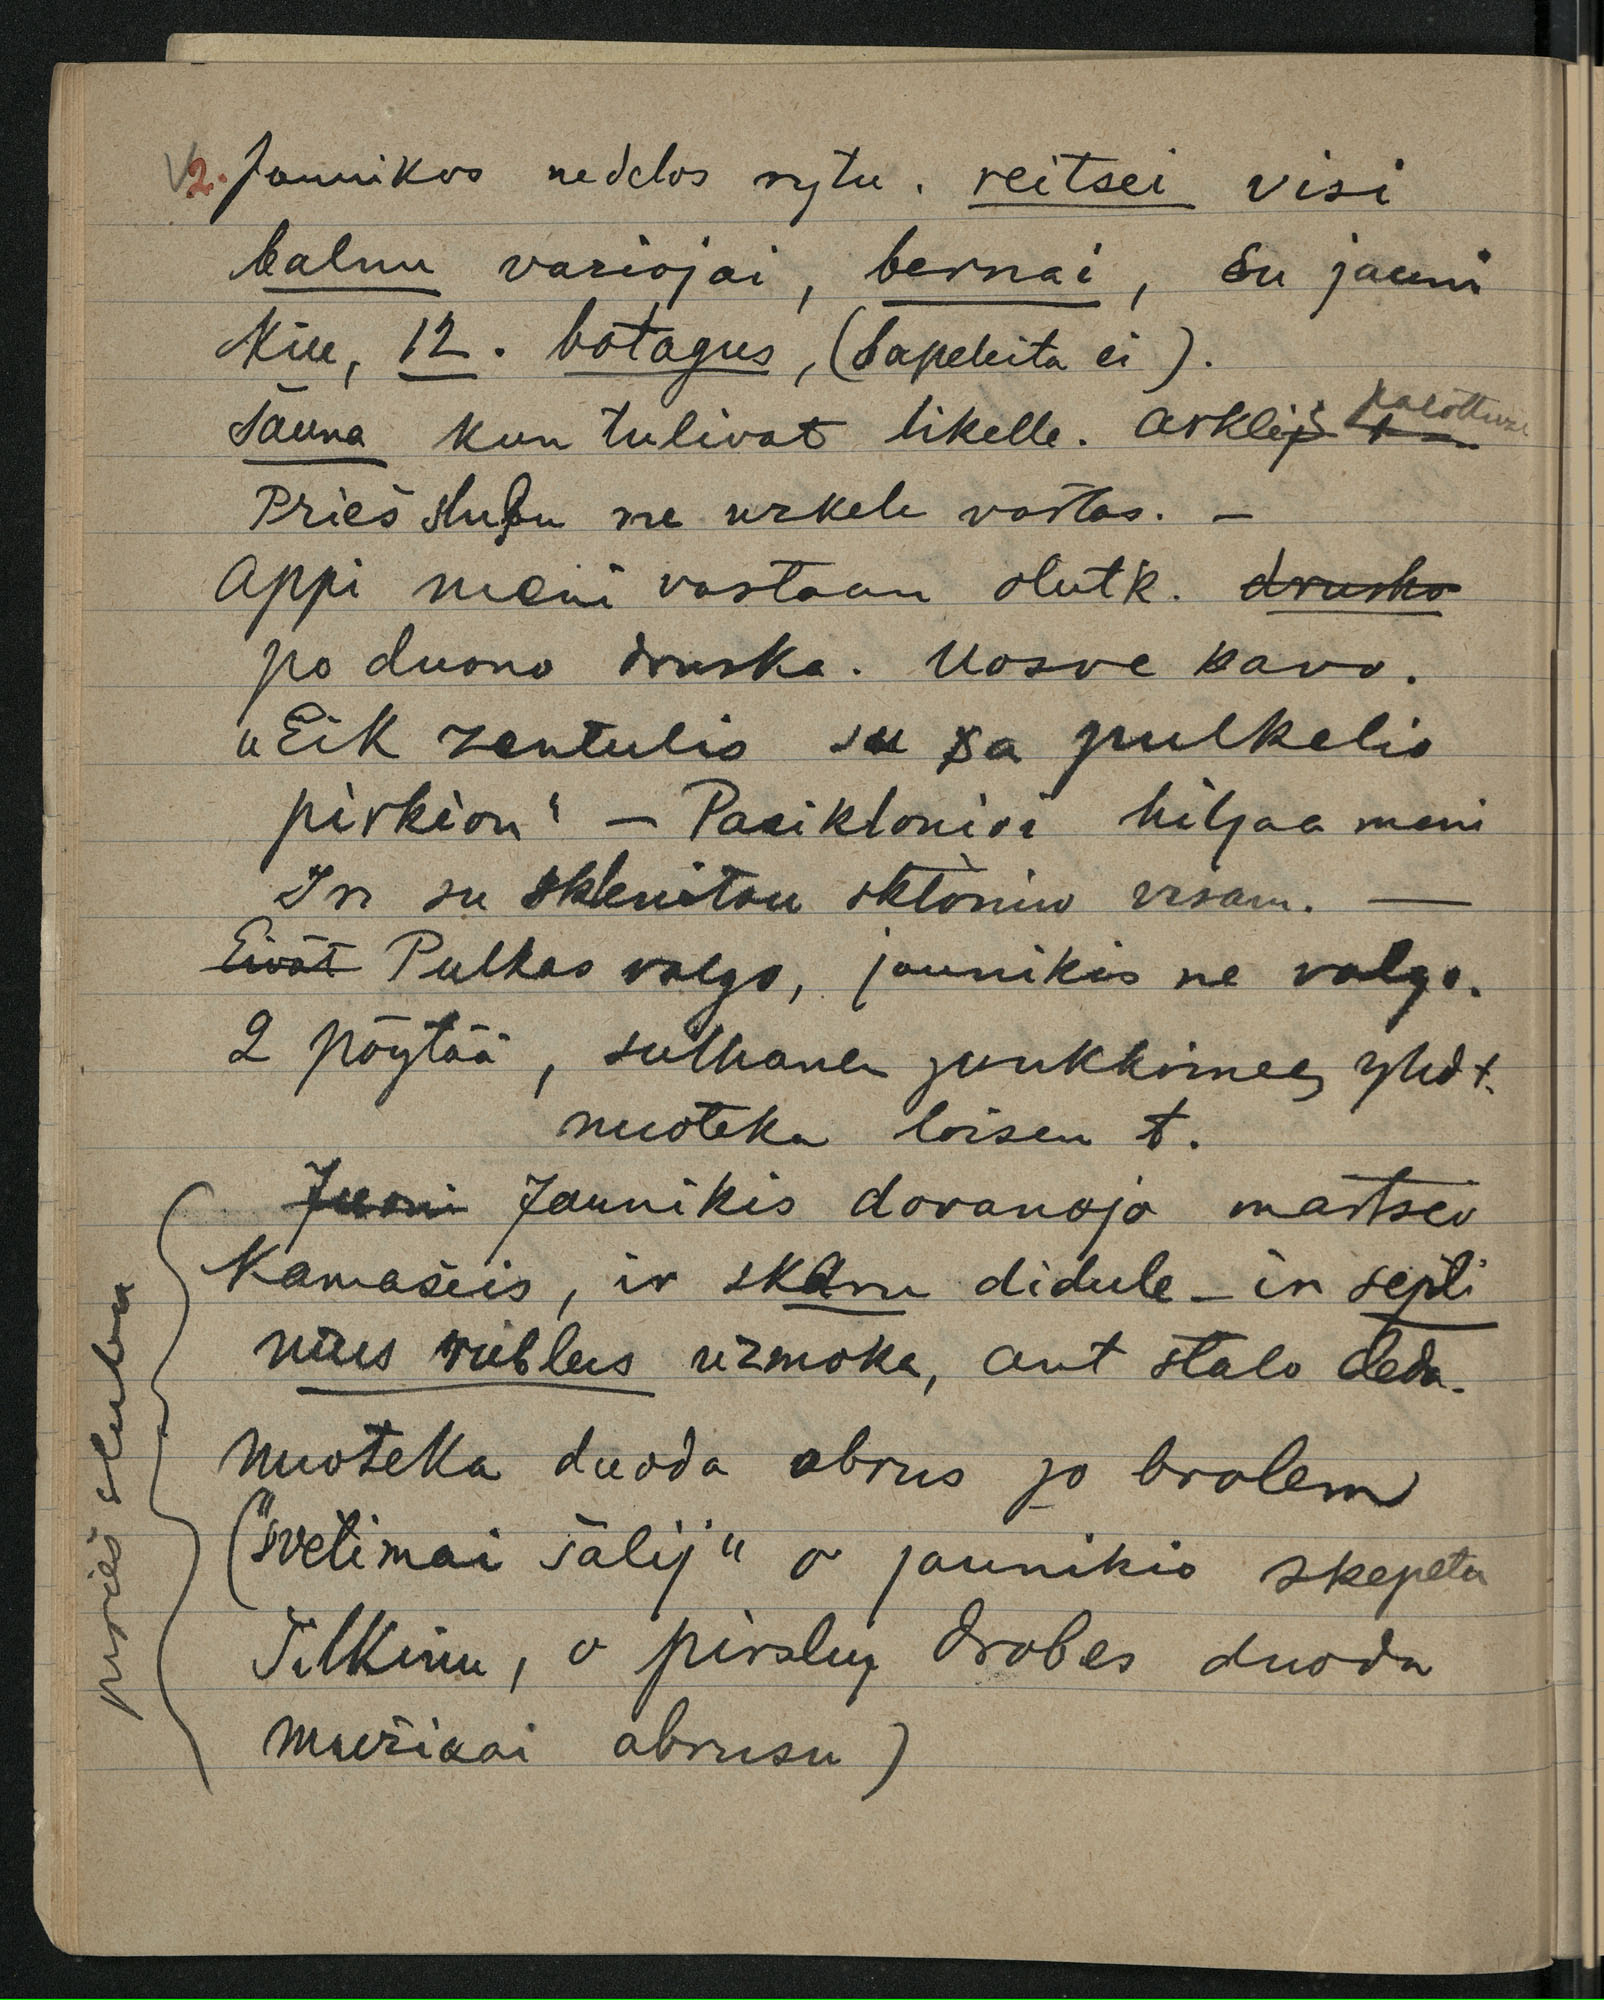 2. Jaunikos nedelos rytu. reitsei visi
balnu variojai, bernai, su jauni
kiu, 12. botagus, (bapeleita ei).
šauna kun tulivat likelle. arkleis
Prieš slubu ne uzkele vartas. –
Appi meni vastaan olutk. drusko
po duono druska. Uosve kavo.
„Eik zentulis su sa pulkelio
pirkion" – Pasiklonioi hiljaa meni
Ir su sklenitau sklonino visam. —
Eivät Pulkas valgo, jaunikis ne valgo.
2 pöytää, sulhanen joukkoineen yhd t.
nuoteka toisen t.
Juoni Jaunikis dovanojo martsei
Kamašeis, ir skaru didule – ir septi
nius rublus uzmoka, ant stalo deda.
nuoteka duoda abrus jo brolem
("svetimai šalij" o jaunikio skepeta
šilkinu, o pirsluj drobes duoda
mužikai abrusu)
prieš slubu